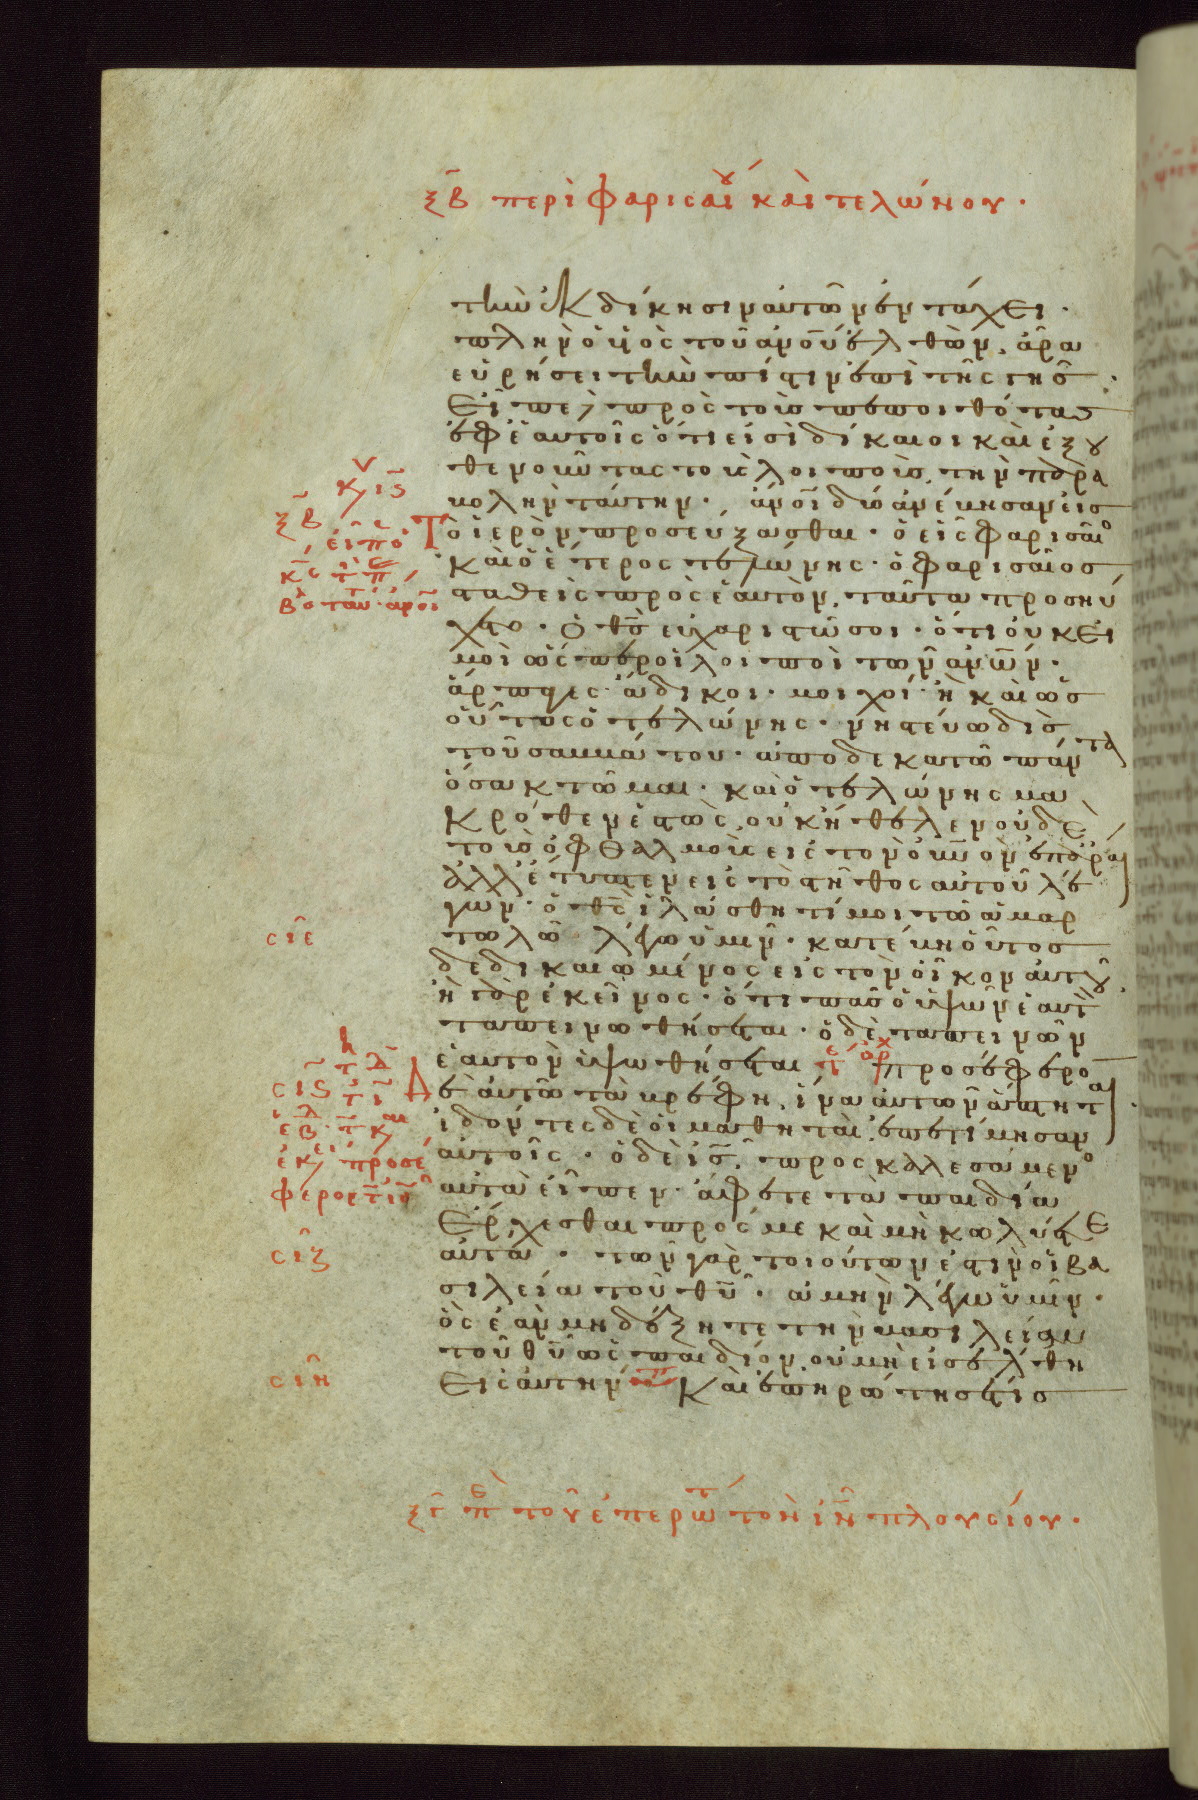 ξβ περὶ φαρισαίου καὶ τελώνου·
τὴν ἐκδίκησιν αὐτῶν ἐν τάχει·
πλὴν ὁ υἱὸς τοῦ ἀνου ἐλθὼν, ἆρα
εὑρήσει τὴν πίστιν ἐπὶ τῆς γῆς·
Εἶπε πρὸς τοὺς πεποιθότας
ἐφ ἑαυτοῖς ὅτι εἰσὶ δίκαιοι καὶ ἐξου
θενοῦντας τοὺς λοιποὺς, τὴν παρα
βολὴν ταύτην· ἀνοι δύο ἀνέβησαν εἰς
Τὸ ἱερὸν προσεύξασθαι· ὁ εἷς φαρισαῖο
καὶ ὁ ἕτερος τελώνης· ὁ φαρισαῖος
σταθεὶς πρὸς ἑαυτὸν, ταῦτα προσηύ
χετο· Ὁ θς εὐχαριστῶ σοι· ὅτι οὐκ εἰ
μὶ ὡς περ οἱ λοιποὶ τῶν ἀνων·
ἅρπαγες· ἄδικοι· μοιχοί· ἢ καὶ ὡς
οὗτος ὁ τελώνης· νηστεύω δὶς
τοῦ σαββάτου· ἀποδεκατῶ πάντα
ὅσα κτῶμαι· καὶ ὁ τελώνης μα
κρόθεν ἑστὼς, οὐκ ἤθελεν οὐδὲ
τοὺς ὀφθαλμοὺς εἰς τὸν οὐνον ἐπᾶραι
ἀλλ ἔτυπτεν εἰς τὸ στῆθος αὐτοῦ λέ
γων· ὁ θς ἱλάσθητί μοι τῶ ἁμαρ
σιε τωλῶ· λέγω ὑμῖν· κατέβη οὗτος
δεδικαιωμένος εἰς τὸν οἶκον αὐτοῦ
ἢ παρ ἐκεῖνος· ὅτι πᾶς ὁ ὑψῶν ἑαυτὸ
ταπεινωθήσεται· ὁ δὲ ταπεινῶν
ἑαυτὸν ὑψωθήσεται προσέφερο
σις δὲ αὐτῶ τὰ βρέφη, ἵνα αὐτῶν ἅπτηται·
ἰδόντες δὲ οἱ μαθηταὶ, ἐπετίμησαν
αὐτοῖς· ὁ δὲ ις, προσκαλεσάμενο
αὐτὰ εἶπεν· ἄφετε τὰ παιδία
ἔρχεσθαι πρός με καὶ μὴ κωλύετε
σιζ αὐτά· τῶν γὰρ τοιούτων ἐστὶν ἡ βα
σιλεία τοῦ θυ· ἀμὴν λέγω ὑμῖν·
ὃς ἐὰν μὴ δέξητε τὴν βασιλείαν
τοῦ θυ ὡς παιδίον, οὐ μὴ εἰσέλθη
σιη εἰς αὐτήν Καὶ ἐπηρώτησέ τις
ξγ πε τοῦ ἐπερωτ τὸν ιν πλουσίου·